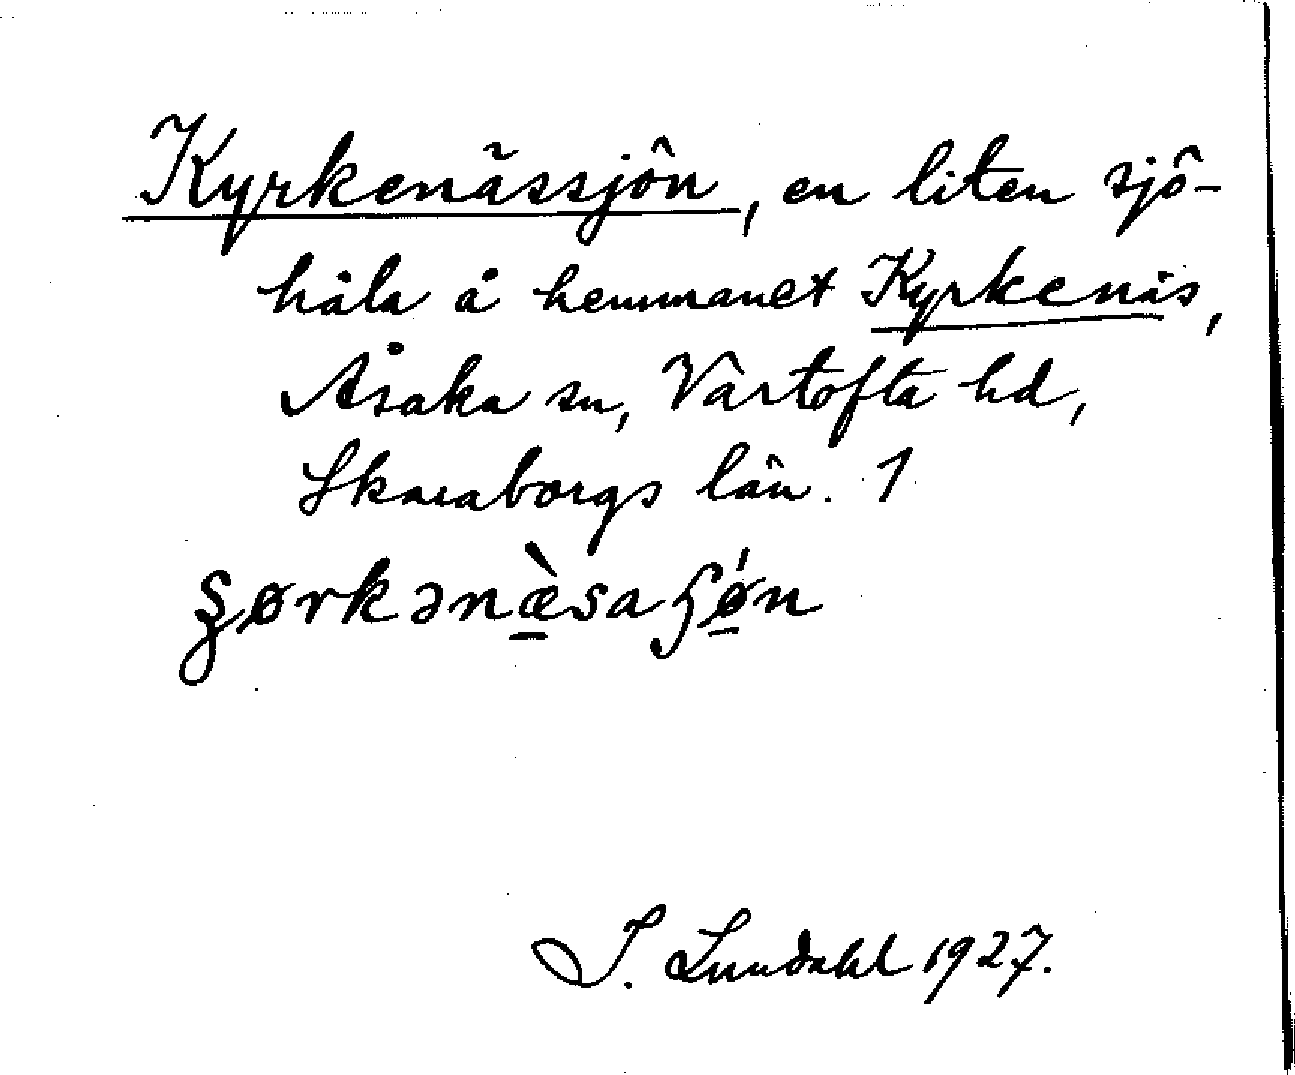 Kyrkenässjön, en liten sjö-
håla å hemmanet Kyrkenäs,
Åsaka sn, Vartofta hd,
Skaraborgs län. 1
I. Lundahl 1927.